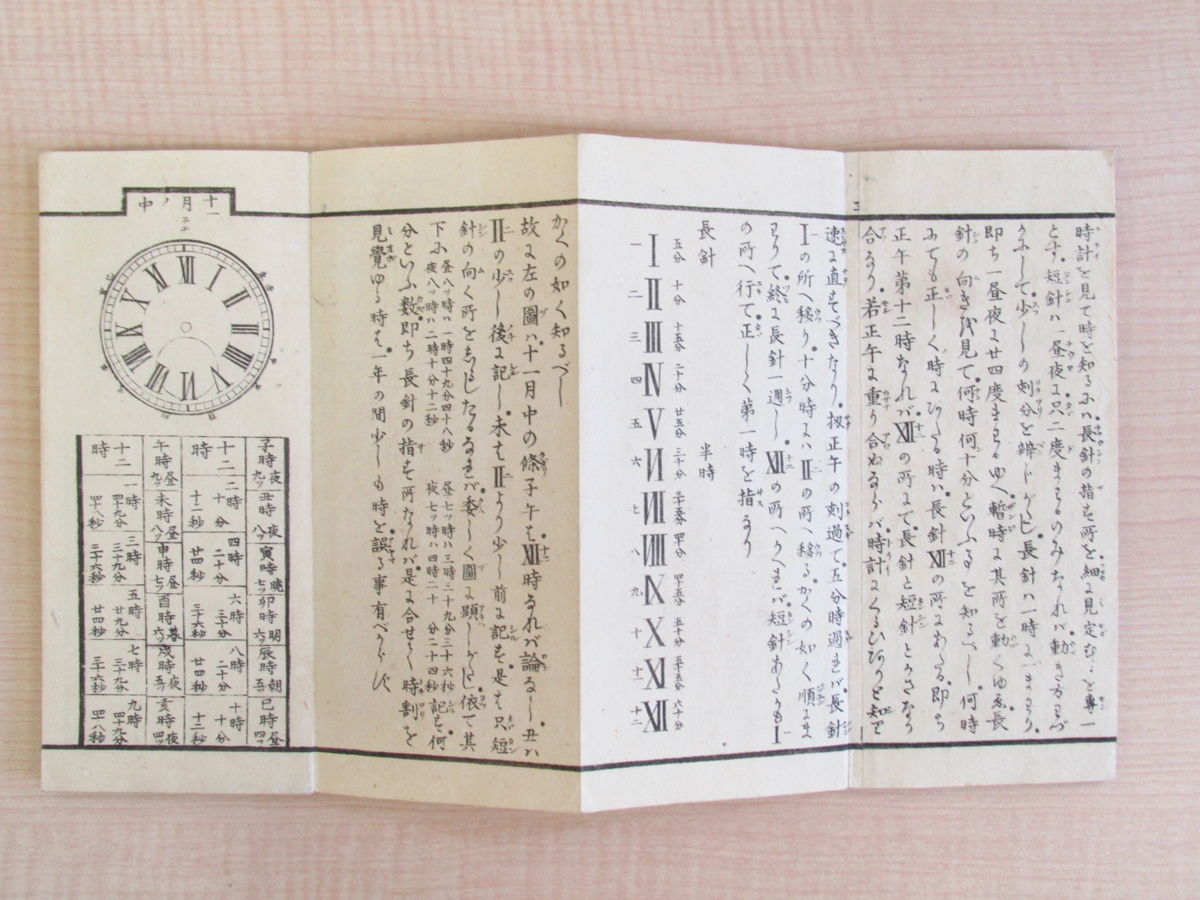 時計を見て時を知るにハ長針の指す所を細に見定むるを專一
とす短針ハ一昼夜に只二度まわるのみなれバ動き方わづ
かにして少しの刻分を辨じがたし長針ハ一時に一まわり
即ち一昼夜に廿四度まわるゆへ暫時に其所を動くゆゑ長
針の向きを見て何時何十分といふ事を知るべし何時
にても正しく時にあたる時ハ長針XIIの所にあたる即ち
正午第十二時なれバXIIの所にて長針と短針とかさなり
合なり若正午に重り合ぬならバ時計にくるひありと知て
速に直すべきなり扨正午の刻過て五分時過れバ長針
Iの所へ移り十分時にハIIの所へ移るかくの如く順にま
わりて終に長針一週しXIIの所へかへれバ短針あらたにI
の所へ行て正しく第一時を指なり
長針 半時
五分 十分 十五分 二十分 廿五分 三十分 三十五分 四十分 四十五分 五十分 五十五分 六十分
I II III IV V VI VII VIII IX X XI XII
一 二 三 四 五 六 七 八 九 十 十一 十二
かくの如く知るべし
故に左の圖ハ十一月中の條子午はXII時なれバ論なし丑ハ
IIの少し後に記し未はIIより少し前に記す是は只短
針の向く所をしるしたるなれバ委しく圖に顕しがたし依て其
下に
昼八ッ時ハ一時四十九分四十八秒 昼七ッ時ハ三時三十九分三十六秒
夜八ッ時ハ二時十分十二秒 夜七ッ時ハ四時二十分二十四秒
記す何
分といふ数即ち長針の指す所なれバ是に合せて時割を
見覺ゆる時は一年の間少しも時を誤る事有べからず
十一月ノ中
XII I II III IV V VI VII VIII IX X XI
子時 夜九ッ 丑時 夜八ッ 寅時 曉七ッ 卯時 明六ッ 辰時 朝五ッ 巳時 昼四ッ
十二時 二時十分十二秒 四時二十分廿四秒 六時三十分三十六秒 八時二十分廿四秒 十時十分十二秒
午時 昼九ッ 未時 昼八ッ 申時 昼七ッ 酉時 暮六ッ 戌時 夜五ッ 亥時 夜四ッ
十二時 一時四十九分四十八秒 三時三十九分三十六秒 五時廿九分廿四秒 七時三十九分三十六秒 九時四十九分四十八秒